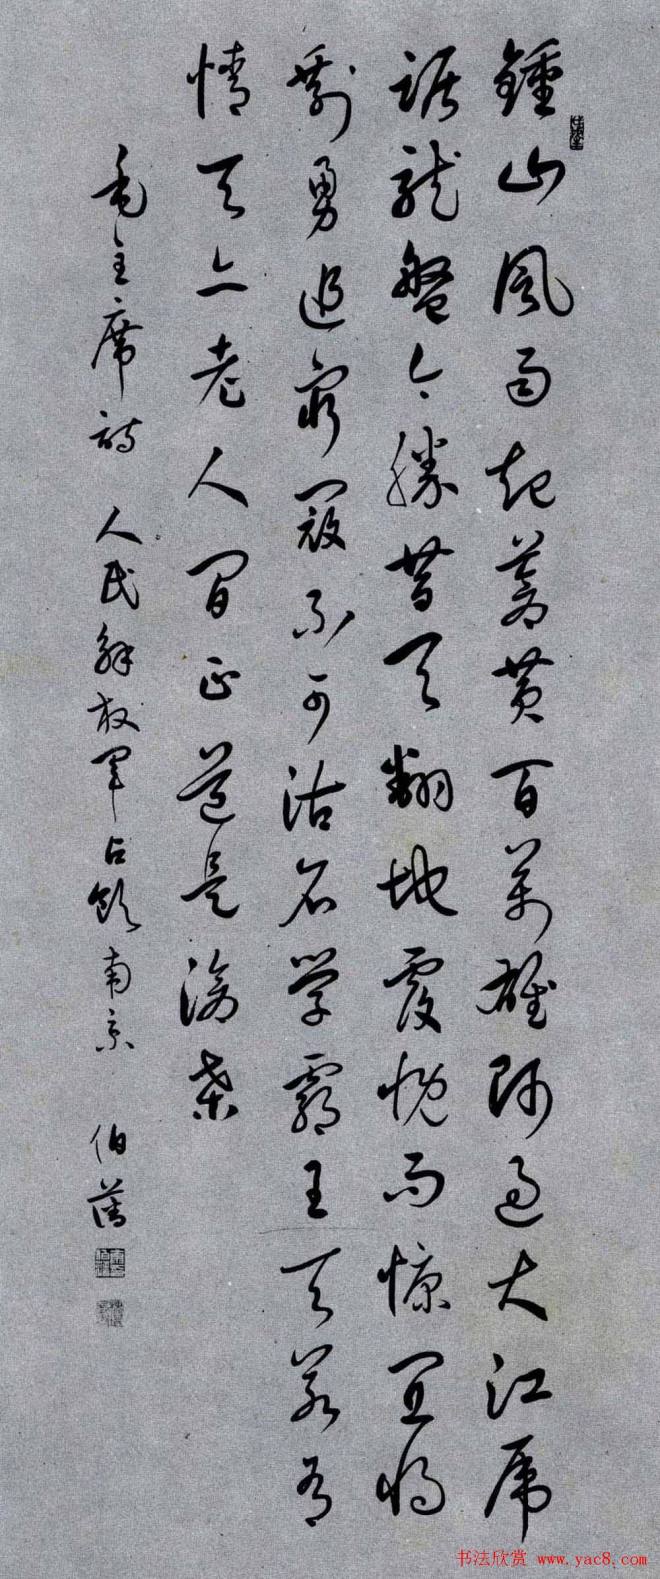 鍾山風雨起蒼黃百萬雄師過大江虎
踞龍盤今勝昔天翻地覆慨而慷宜將
剩勇追窮寇不可沽名學霸王天若有
情天亦老人間正道是滄桑
毛主席詩 人民解放軍占領南京 伯
书法欣赏 www.yac8.com